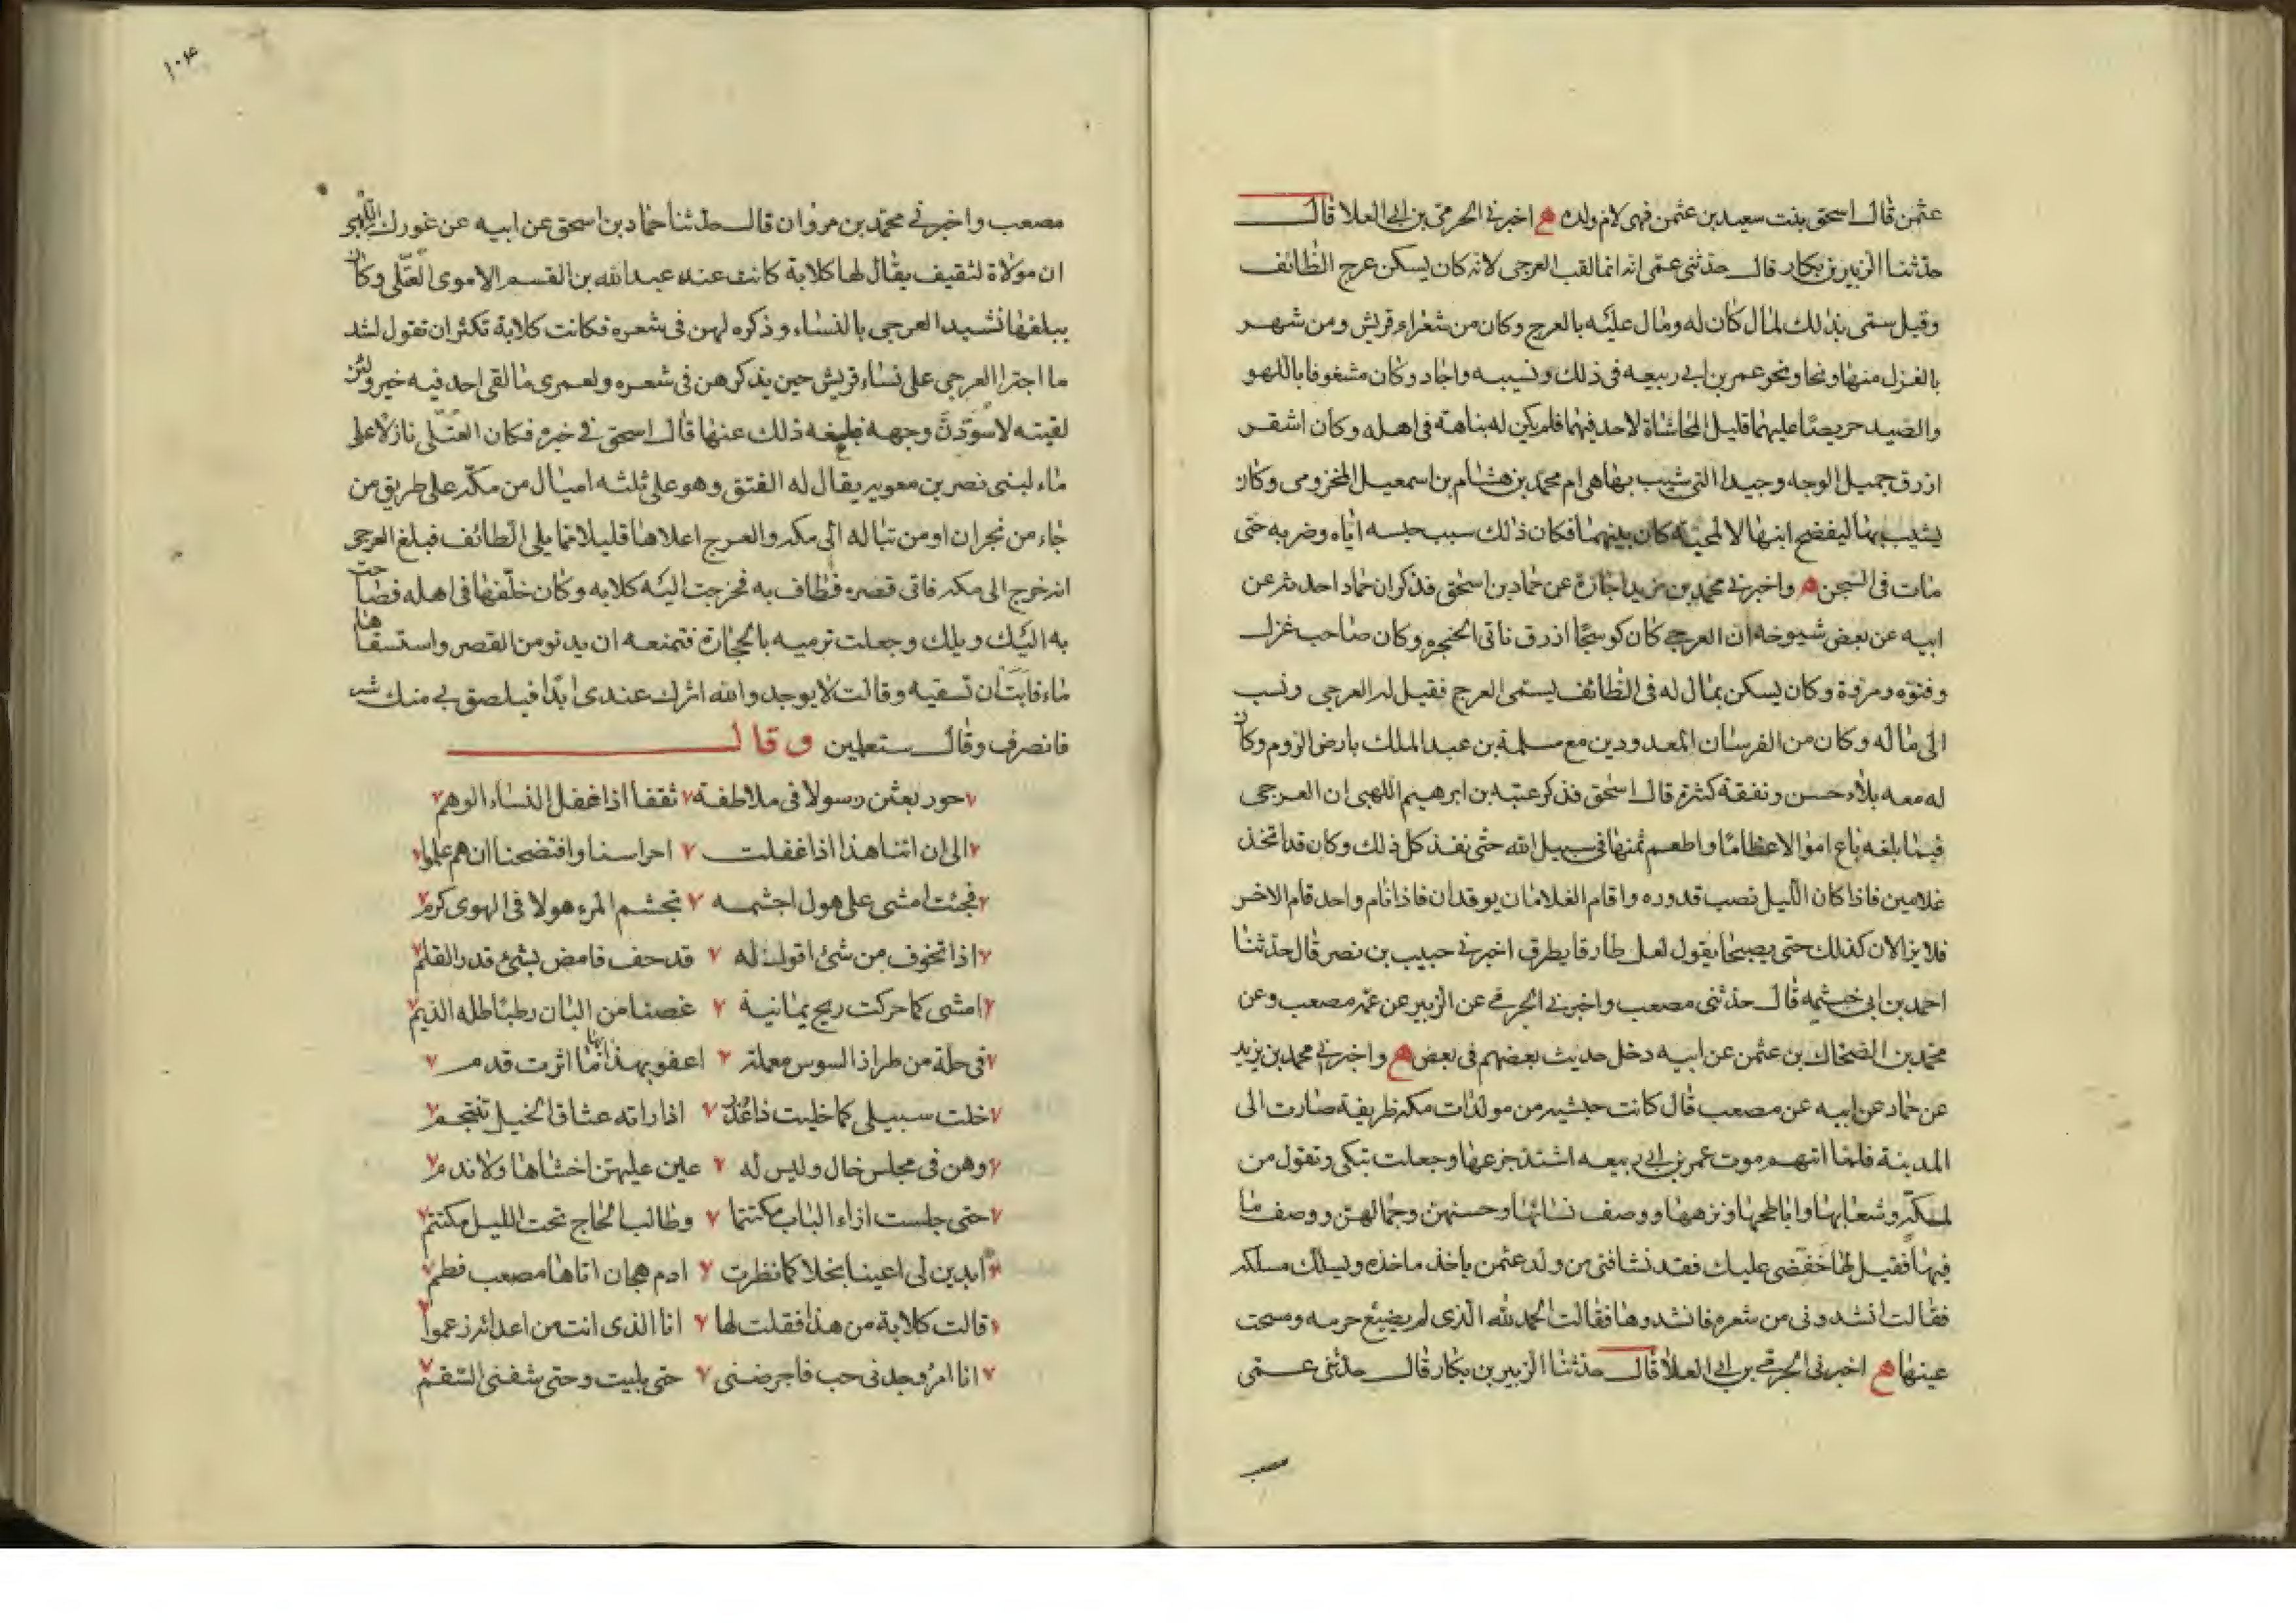 عثمن قال اسحق بنت سعيد بن عثمن فهى لام ولده ه اخبرنى الحرمى بن ابى العلا قال
حدثنا الزبير بن بكار قال حدثنى عمى انه انما لقب العرجى لانه كان يسكن عرج الطائف
وقيل سمى بذلك لمال كان له ومال عليه بالعرج وكان من شعراء قريش ومن شهر
بالغزل منها ونحا ونحو عمر بن ابى ربيعه فى ذلك وتشيبه واجاد وكان مشغوفا باللهو
والصيد حريصا عليهما قليل المحاشاة لاحد فيهما فلم يكن له بناهة فى اهله وكان اشقر
ازرق جميل الوجه وجيدا التى شبب بها هى ام محمد بن هشام بن اسمعيل المخزومى وكان
يشبب بها ليفضح ابنها لا لمحبة كان بينهما فكان ذلك سبب حبسه اياه وضربه حتى
مات فى السجن ه واخبرنى محمد بن مزيد اجازة عن حماد بن اسحق فذكر ان حمادا حدثه عن
ابيه عن بعض شيوخه ان العرجى كان كوسجا ازرق ناتى الحنجره وكان صاحب غزل
وفتوه ومروة وكان يسكن بمال له فى الطائف يسمى العرج فقيل له العرجى ونسب
الى ماله وكان من الفرسان المعدودين مع مسلمة بن عبد الملك بارض الروم وكان
له معه بلاء حسن ونفقة كثيرة قال اسحق فذكر عتبه بن ابرهيم اللهبى ان العرجى
فيما بلغه باع اموالا عظاما واطعم ثمنها فى سبيل الله حتى نفذ كل ذلك وكان قد اتخذ
غلامين فاذا كان الليل نصب قدوره واقام الغلامان يوقدان فاذا نام واحد قام الاخر
فلا يزالان كذلك حتى يصبحا يقول لعل طارقا يطرق اخبرنى حبيب بن نصر قال حدثنا
احمد بن ابى خيثمه قال حدثنى مصعب واخبرنى الحرمى عن الزبير عن عمه مصعب وعن
محمد بن الضحاك بن عثمن عن ابيه دخل حديث بعضهم فى بعض ه واخبرنى محمد بن يزيد
عن حماد عن ابيه عن مصعب قال كانت حبشيه من مولدات مكه ظريفة صارت الى
المدينة فلما اتهم موت عمر بن ابى ربيعه اشتد جزعها وجعلت تبكى وتقول من
لمكة وشعابها واباطحها ونزهها ووصف نسائها وحسنهن وجمالهن ووصف ما
فيها فقيل لها خفضى عليك فقد نشا فتى من ولد عثمن ياخذ ماخذه ويسلك مسلكه
فقالت انشدونى من شعره فانشدوها فقالت الحمد لله الذى لم يضيع حرمه ومسحت
عينها ه اخبرنى الحرمى بن ابى العلا قال حدثنا الزبير بن بكار قال حدثنى عمى
مصعب
١٠٤
مصعب واخبرنى محمد بن مروان قال حدثنا حماد بن اسحق عن ابيه عن غورك اللهبى
ان مولاة لثقيف يقال لها كلابة كانت عند عبد الله بن القسم الاموى العبلى وكان
يبلغها تشبيد العرجى بالنساء وذكره لهن فى شعره فكانت كلابة تكثر ان تقول لشد
ما اجترا العرجى على نساء قريش حين يذكرهن فى شعره ولعمرى ما لقى احد فيه خير ولئن
لقيته لاسودن وجهه فبلغه ذلك عنها قال اسحق فى خبره فكان العبلى نازلا على
ماء لبنى نصر بن معويه يقال له الفتق وهو على ثلثه اميال من مكة على طريق من
جاء من نجران او من تباله الى مكه والعرج اعلاها قليلا مما يلى الطائف فبلغ العرجى
انه خرج الى مكه فاتى قصره فطاف به فخرجت اليه كلابه وكان خلفها فى اهله فصاحت
به اليك ويلك وجعلت ترميه بالحجارة فتمنعه ان يدنو من القصر واستسقاها
ماء فابت ان تسقيه وقالت لا يوجد والله اثرك عندى ابدا فيلصق بى منك شر
فانصرف وقال ستعلمين وقال
حور بعثن رسولا فى ملاطفة ثقفا اذا غفل النساء الوهم
الى ان اتنا هذا اذا غفلت احراسنا وافتضحنا ان هم علموا
فجئت امشى على هول اجشمه تجشم المرء هولا فى الهوى كرم
اذا تخوف من شئ اقول له قد حف فامض بشئ قدر القلم
امشى كما حركت ريح يمانية غصنا من البان رطبا طله الديم
فى حلة من طراز السوس معلمة اعفو بهذابها ما اثرت قدم
خلت سبيلى كما خليت ذا عذر اذا راته عتاق الخيل تنتجم
وهن فى مجلس خال وليس له عين عليهن اخشاها ولا ندم
حتى جلست ازاء الباب مكتتما وطالب الحاج تحت الليل مكتتم
ابدين لى اعينا نجلا كما نظرت ادم هجان اتاها مصعب قطم
قالت كلابة من هذا فقلت لها انا الذى انت من اعدائه زعموا
انا امرؤ جد نى حب فاحرضنى حتى بليت وحتى شفنى السقم